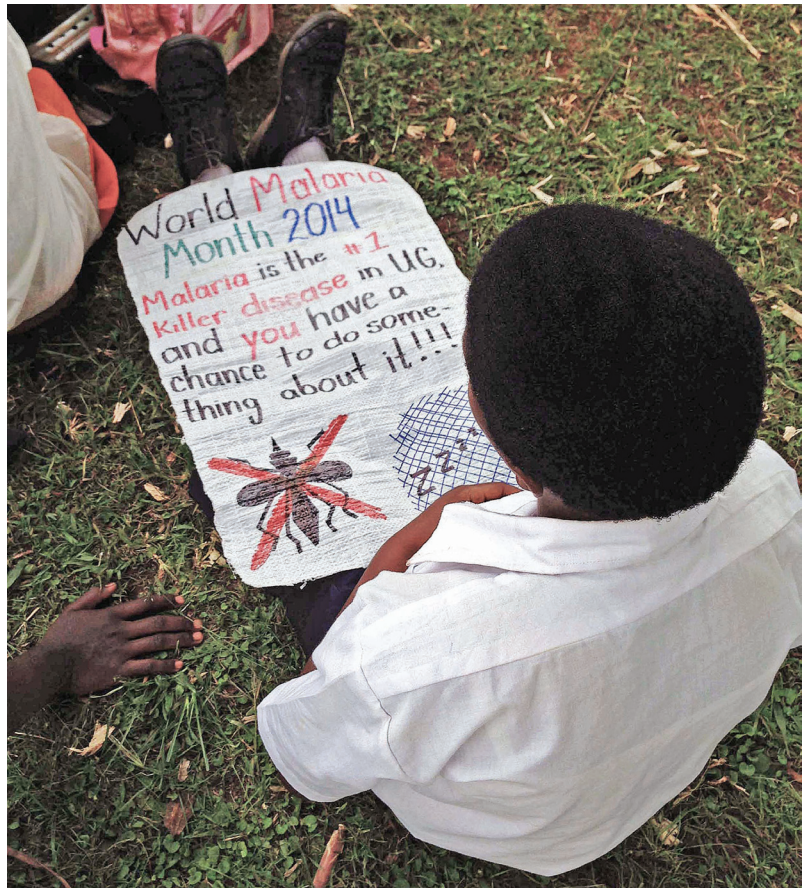 World Malaria
Month 2014
Malaria is the #1
Killer disease in UG,
and you have a
chance to do some-
thing about it!!!
Z Z Z Z